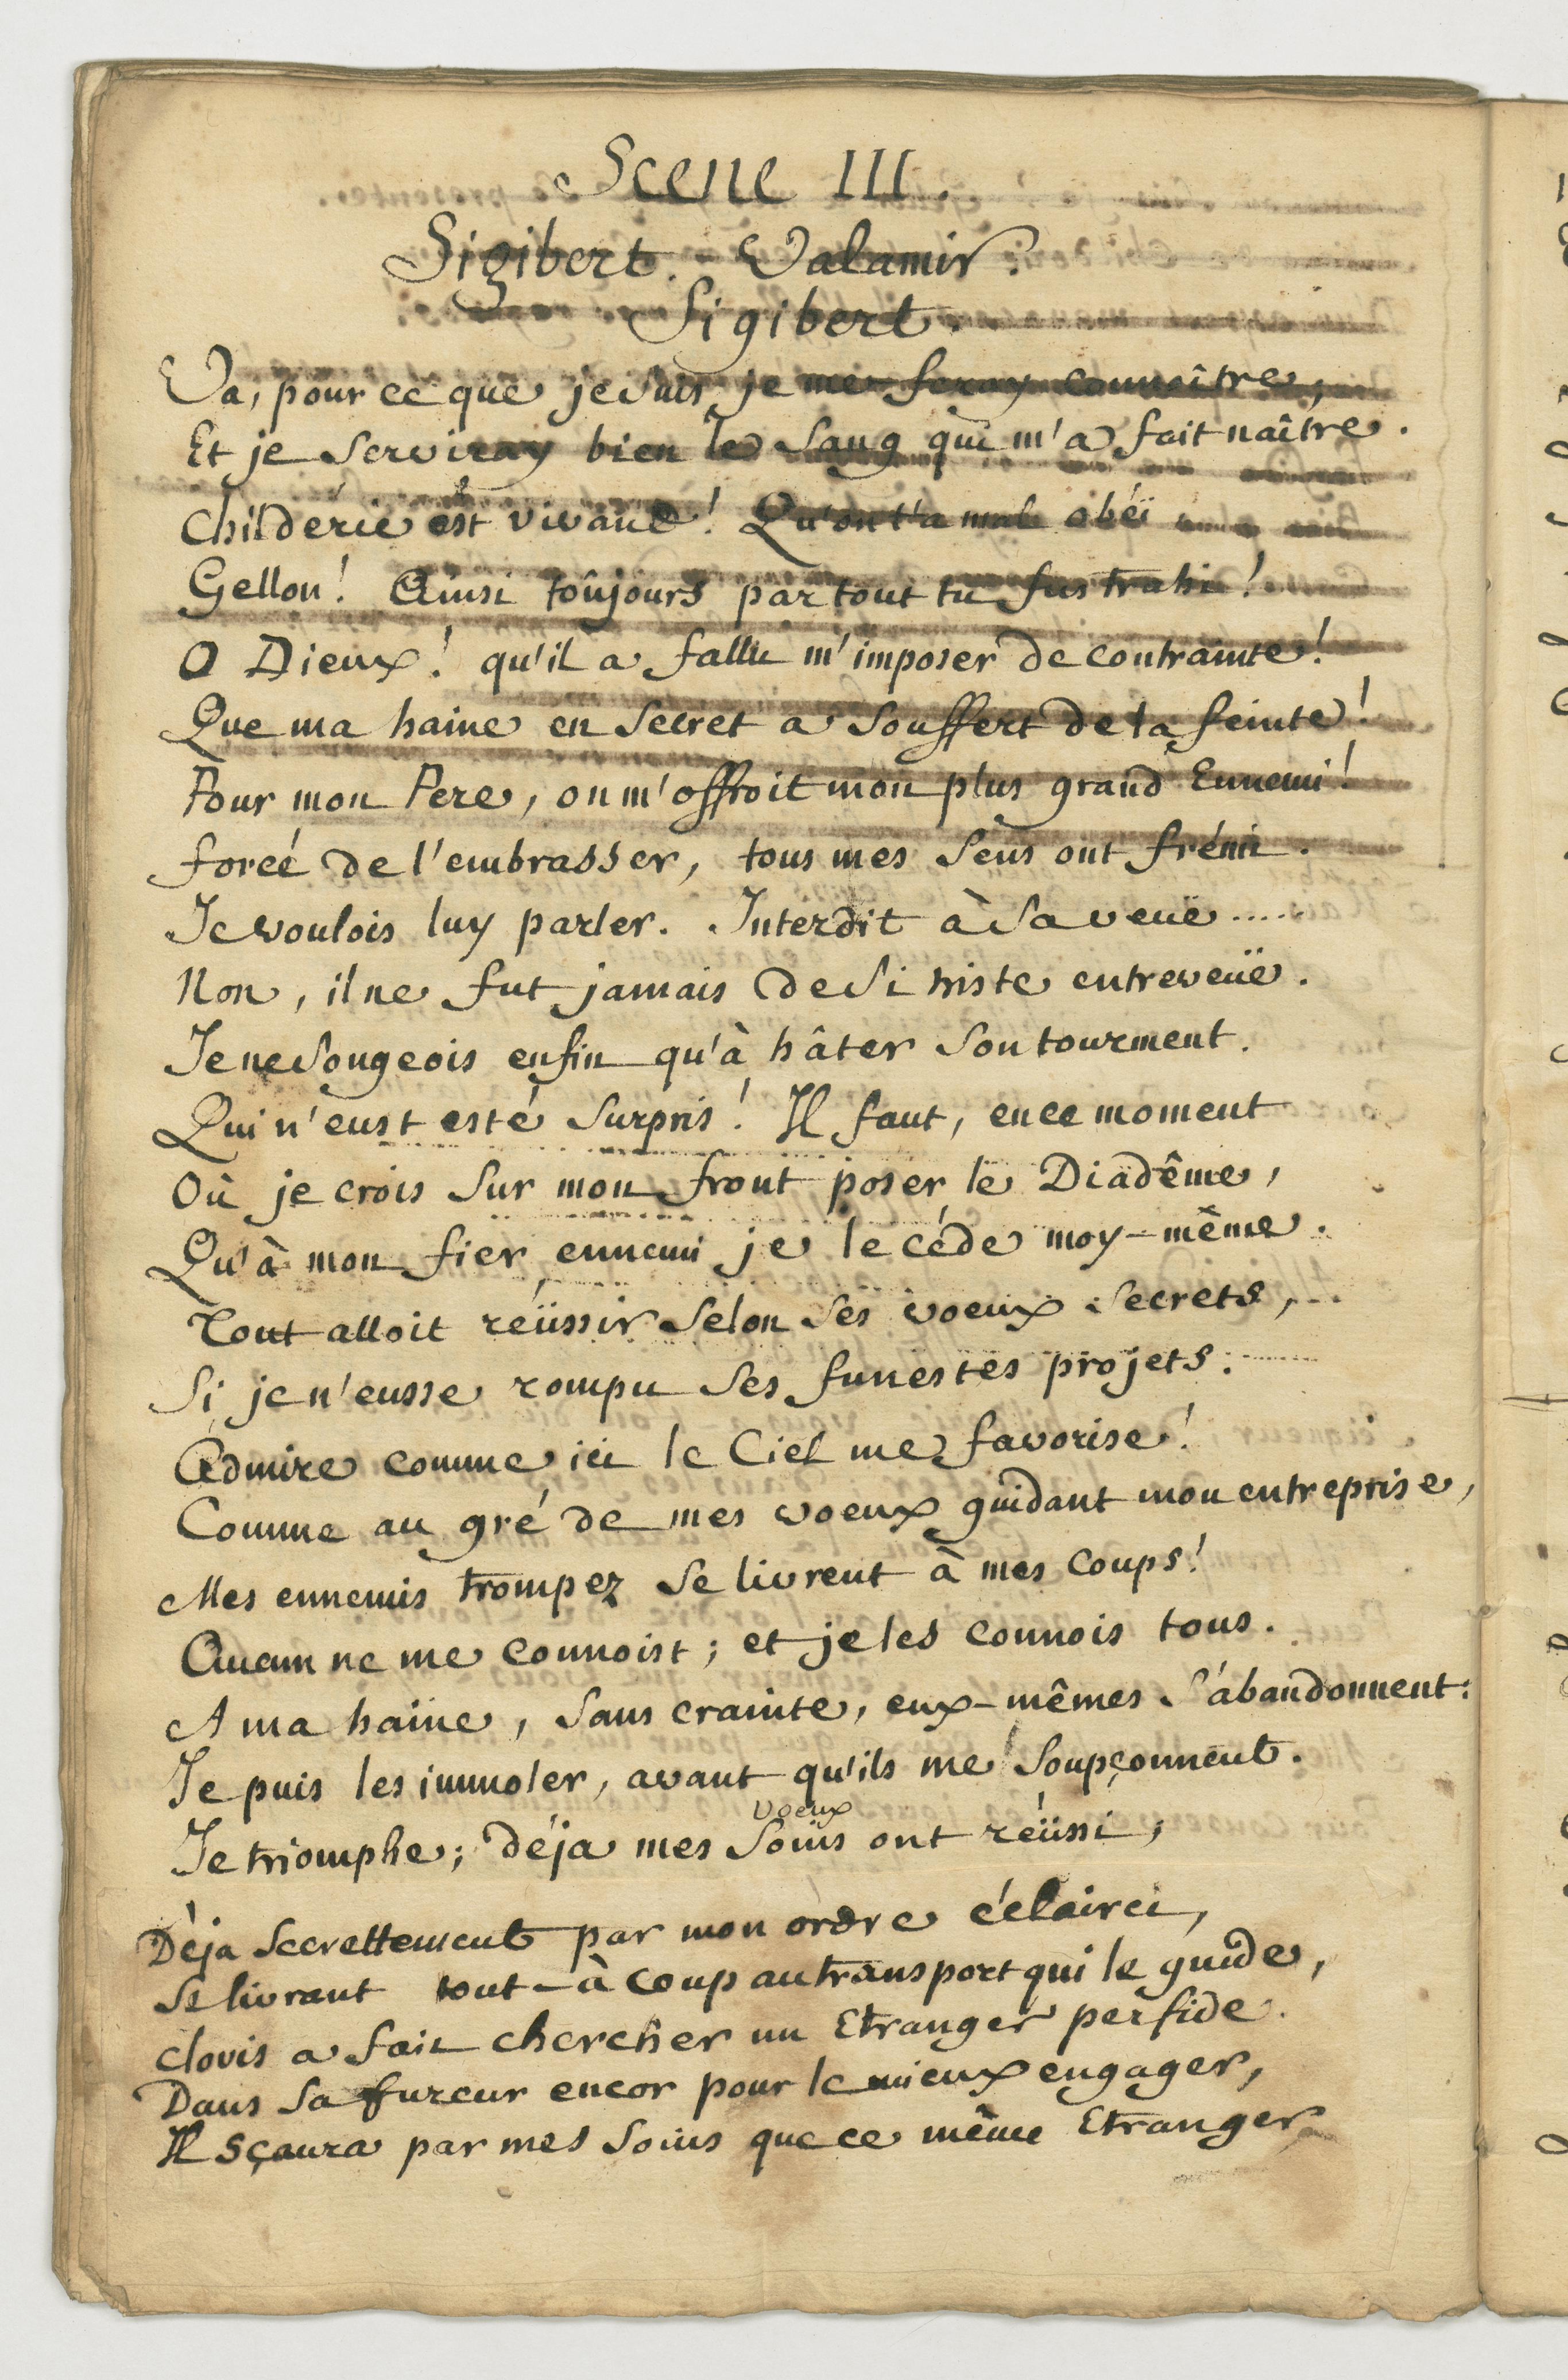 Scene III.
Sigibert. Valamir.
Sigibert.
Va, pour ce que je suis je me feray connaître,
Et je serviray bien le sang qui m'a fait naître.
Childéric est vivant! Qu'on t'a mal obéï
Gellon! Ainsi toûjours partout tu fus trahi!
O Dieux! qu'il a fallu m'imposer de contrainte!
Que ma haine en secret a souffert de la feinte!
Pour mon Pere, on m'offroit mon plus grand Ennemi!
forcé de l'embrasser, tous mes sens ont frémi.
Je voulois luy parler. Interdit à sa veuë.....
Non, il ne fut jamais de si triste entreveüe.
Je ne songeois enfin qu'à hâter son tourment.
Qui n'eust esté surpris! Il faut, en ce moment
Où je crois sur mon front poser le Diadême,
Qu'à mon fier ennemi je le céde moy-même.
Tout alloit reüssir selon ses voeux secrets,
Si je n'eusse rompu ses funestes projets.
Admire comme ici le Ciel me favorise!
Comme au gré de mes voeux guidant mon entreprise,
Mes ennemis trompez se livrent à mes coups!
Aucun ne me connoist; et je les connois tous.
A ma haine, sans crainte, eux-mêmes s'abandonnent:
Je puis les immoler, avant qu'ils me soupçonnent.
voeux
Je triomphe; déja mes soins ont réüssi;
Déja secrettement par mon ordre éclairci,
Se livrant tout-à coup au transport qui le guide,
Clovis a fait chercher un Etranger perfide.
Dans sa fureur encor pour le mieux engager,
Il sçaura par mes soins que ce même Etranger